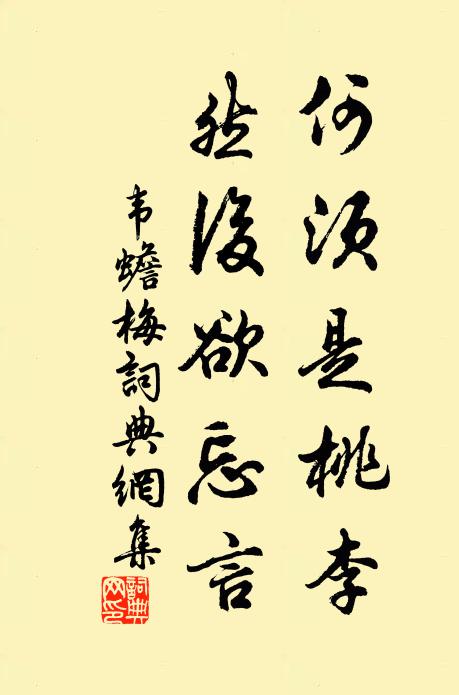 何須是桃李
然後欲忘言
韦蟾梅詞典網集
詞典
网印